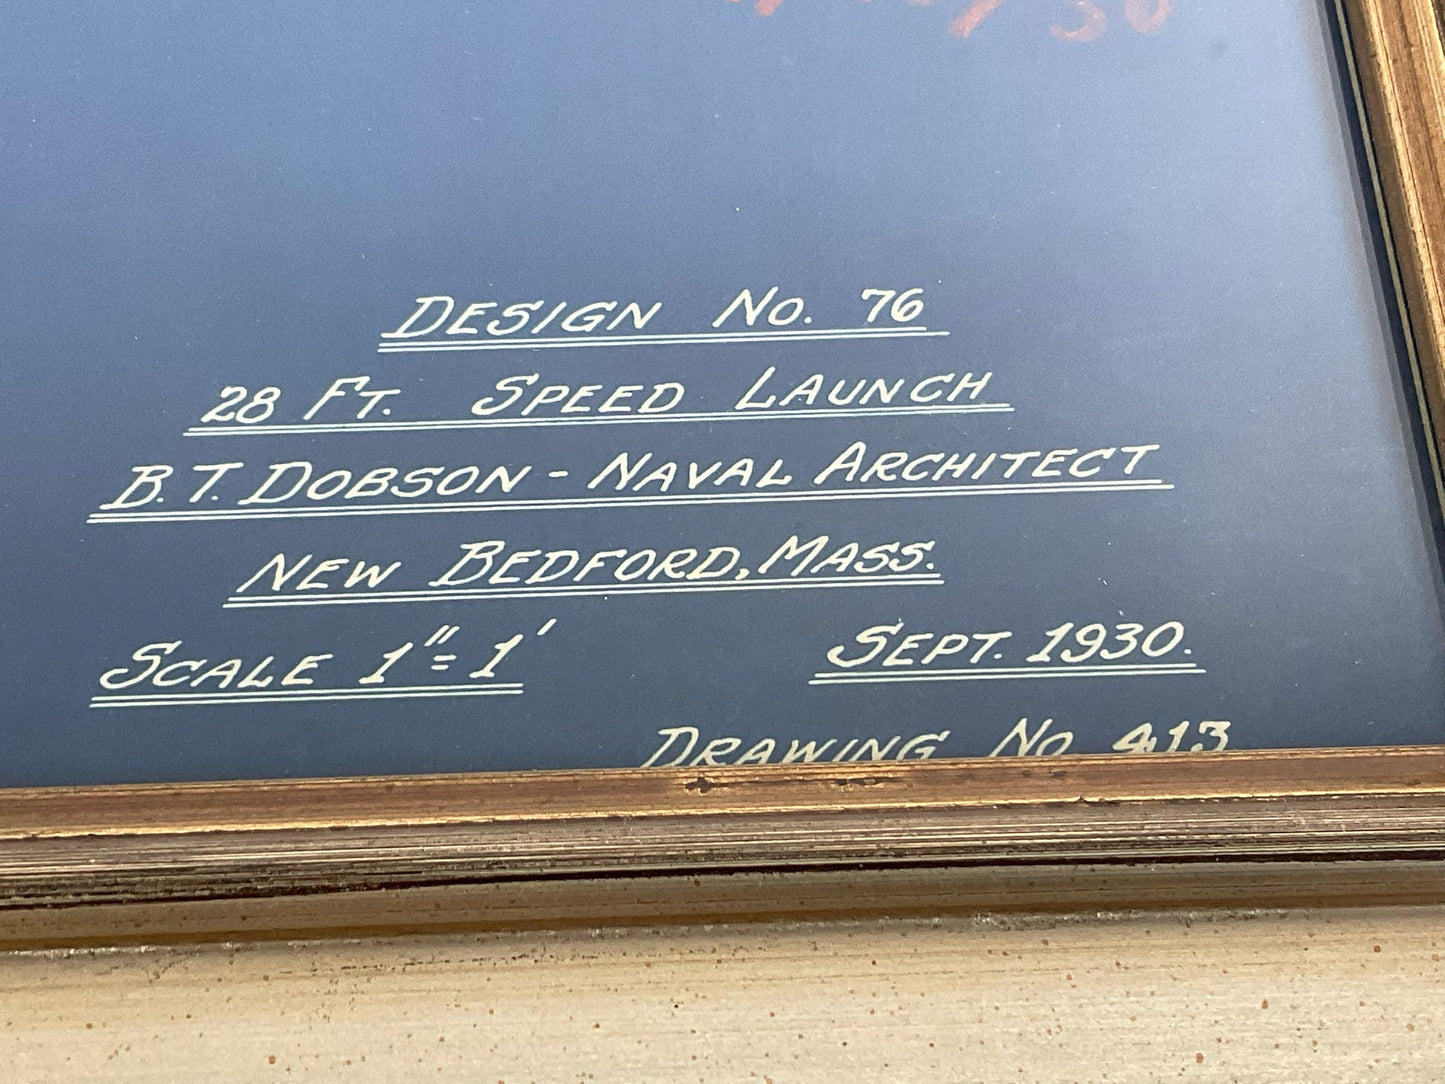 DESIGN NO. 76
28 FT. SPEED LAUNCH
B.T. DOBSON - NAVAL ARCHITECT
NEW BEDFORD, MASS.
SCALE 1"=1' SEPT. 1930.
DRAWING NO 413